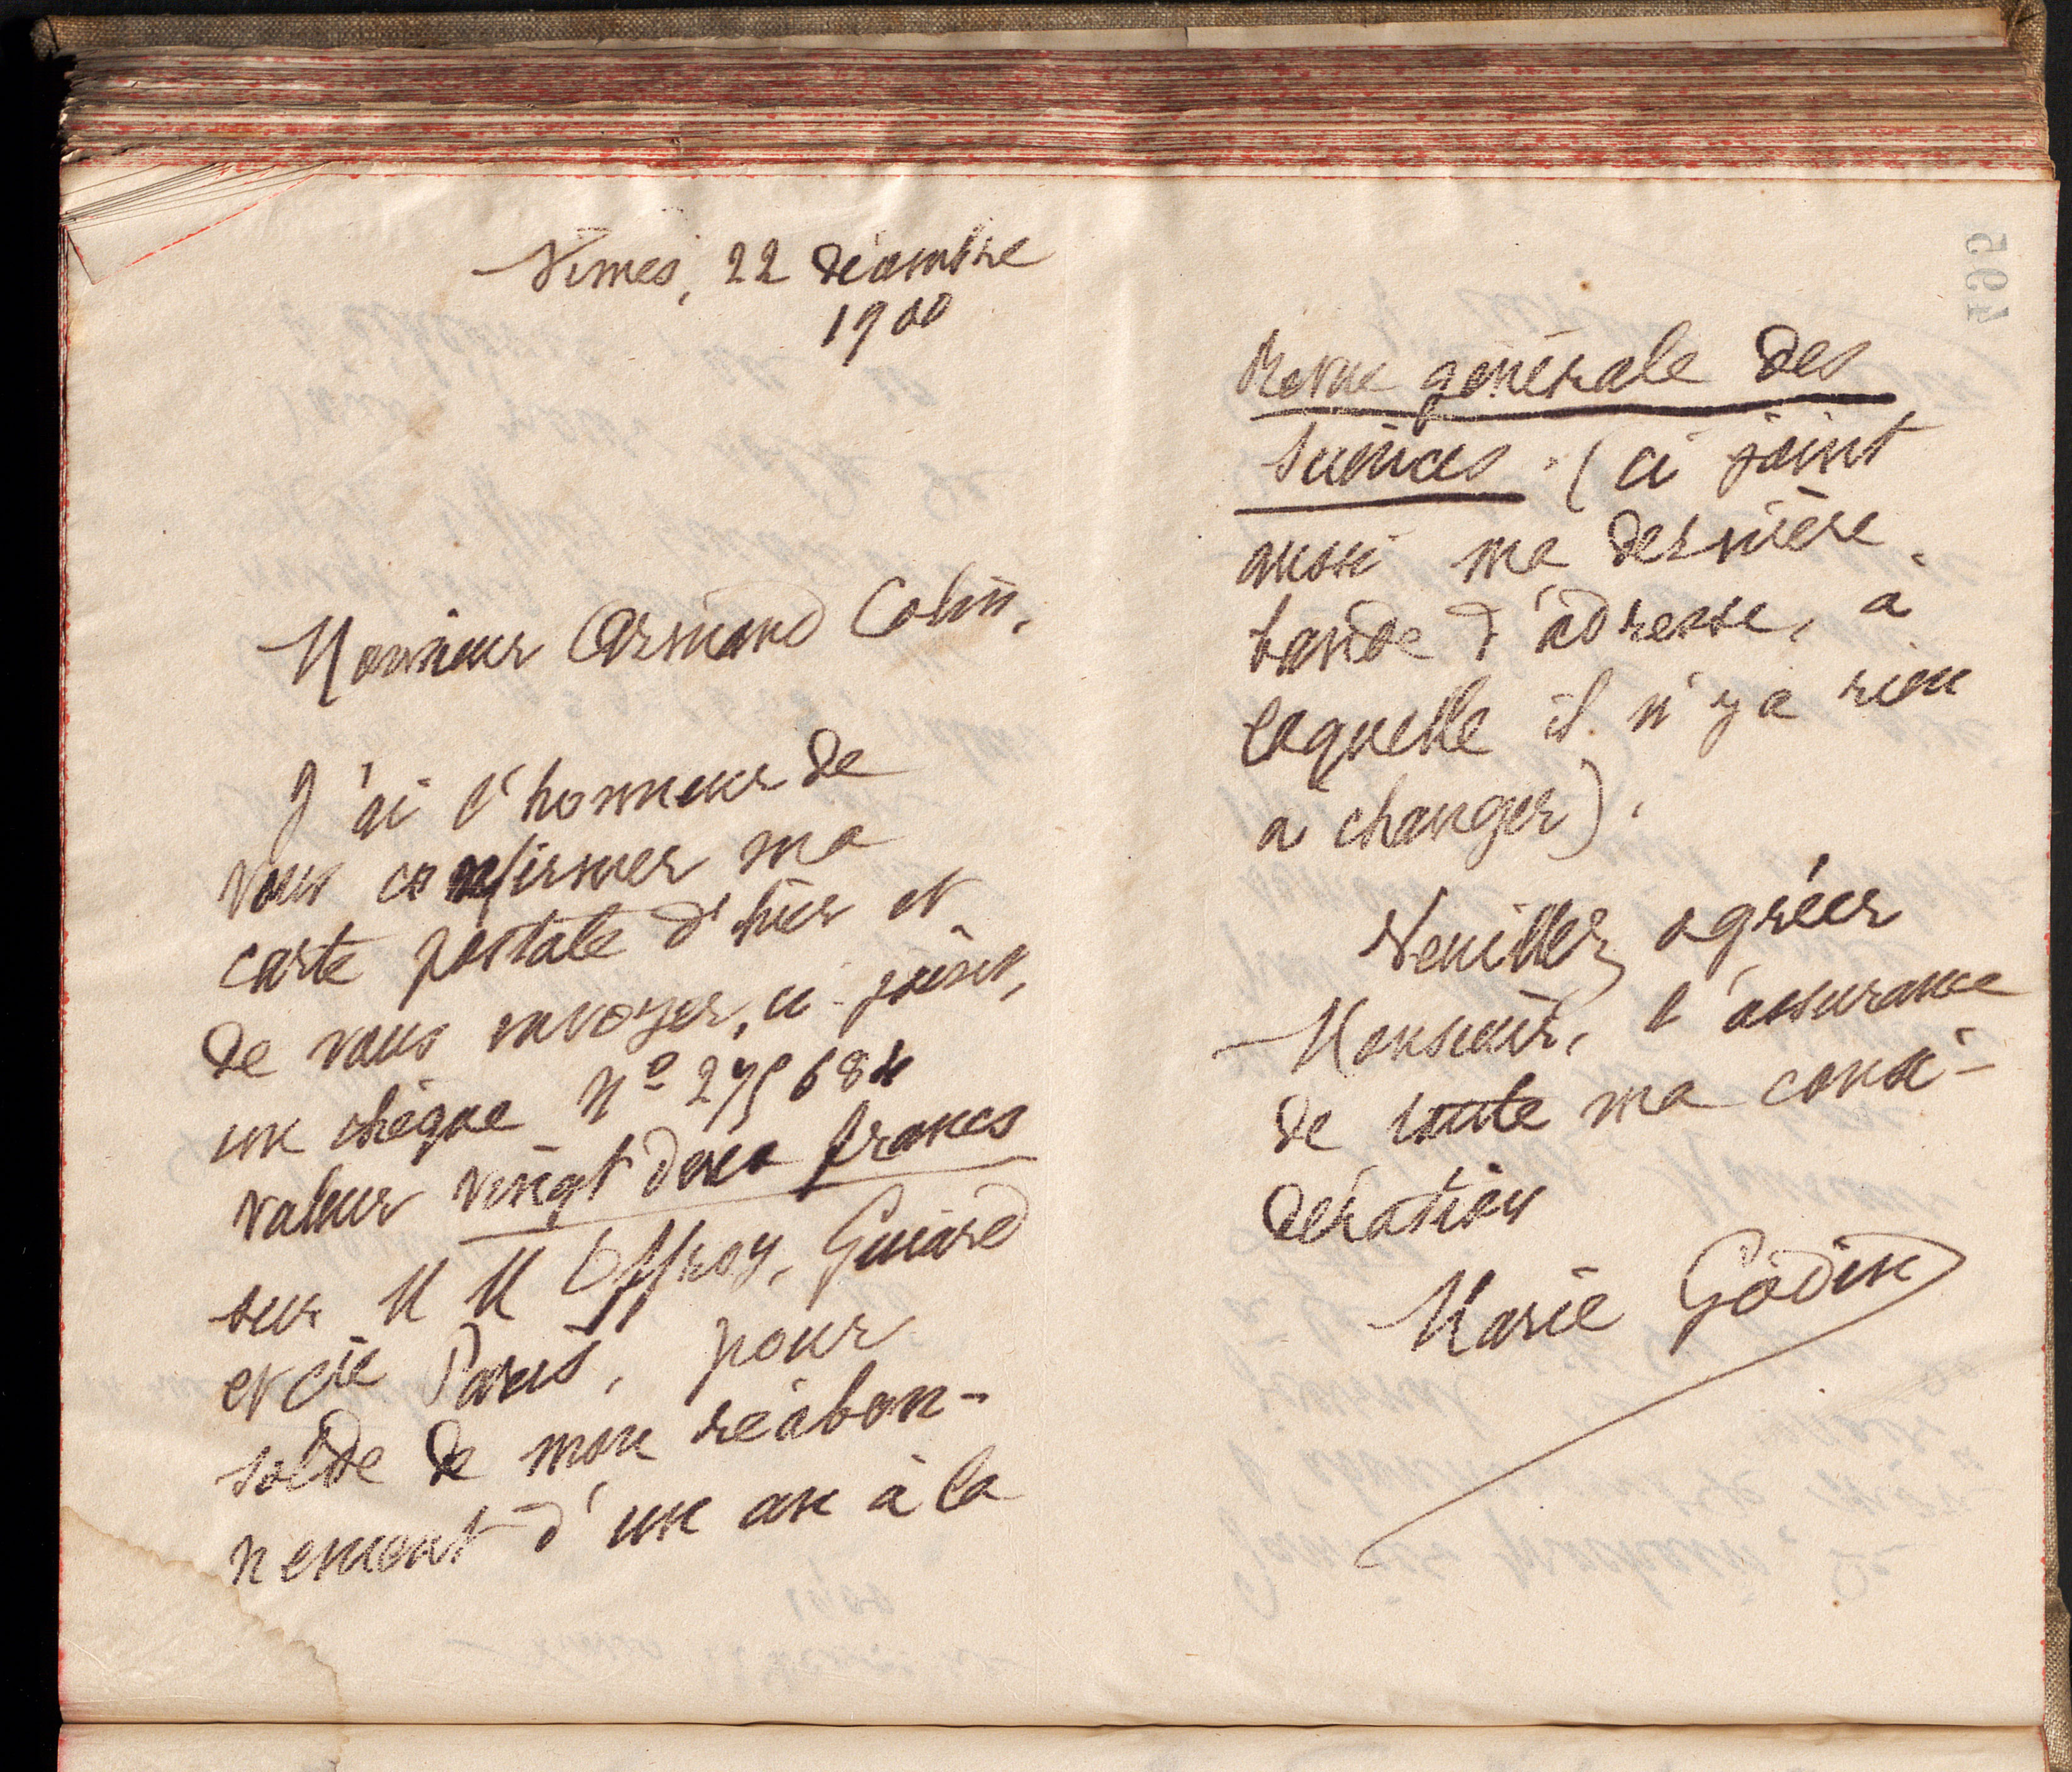 Nimes, 22 décembre
1900
Monsieur Armand Colin,
J'ai l'honneur de
vous confirmer ma
carte postale d'hier et
de vous envoyer, ci-joint,
un chèque N° 275684
valeur vingt deux francs
sur MM Offroy, Guiard
et Cie Paris, pour
solde de mon réabon-
nement d'un an à la
Revue générale des
Sciences. (ci joint
aussi ma dernière
bande d'adresse, à
laquelle il n'y a rien
à changer).
Veuillez agréer
Monsieur, l'assurance
de toute ma consi-
dération
Marie Godin
495